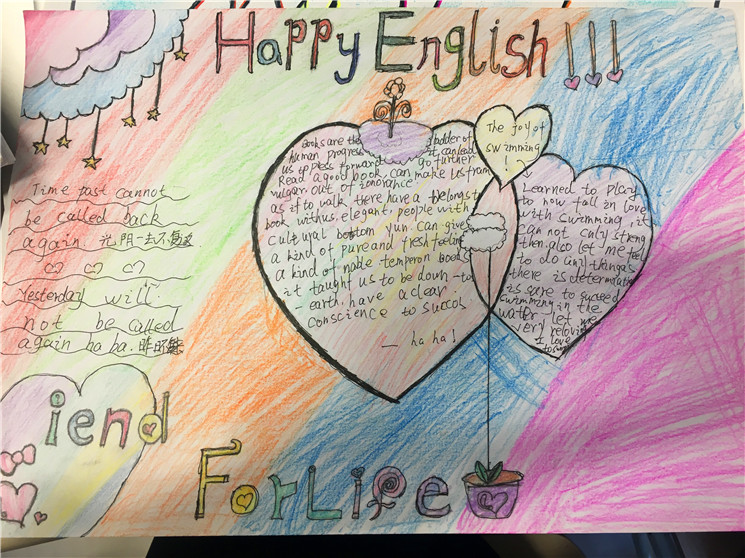 Happy English!!!
Time past cannot
be called back
again 光阴一去不复返
Yesterday will
not be called
again ha ba.
Books are the ladder of
human progress it can lead
us up pless forward go further
Read a good book, can make us from
vulgar out of ignorance
as if to walk there have a belongst
book with us, elegant, people with
cultural bottom yun can give
a kind of pure and fresh feeling
a kind of noble temper on book
it taught us to be down-to
-earth, have a clear
conscience to succol
— ha ha!
The joy of
swimming
!
Learned to play
to now fall in love
with swimming, it
can not only streng
then, also let me feel
to do any things
there is determination
is sare to succeed
swimming in the
water let me
very beloving
I love
iend
For Life